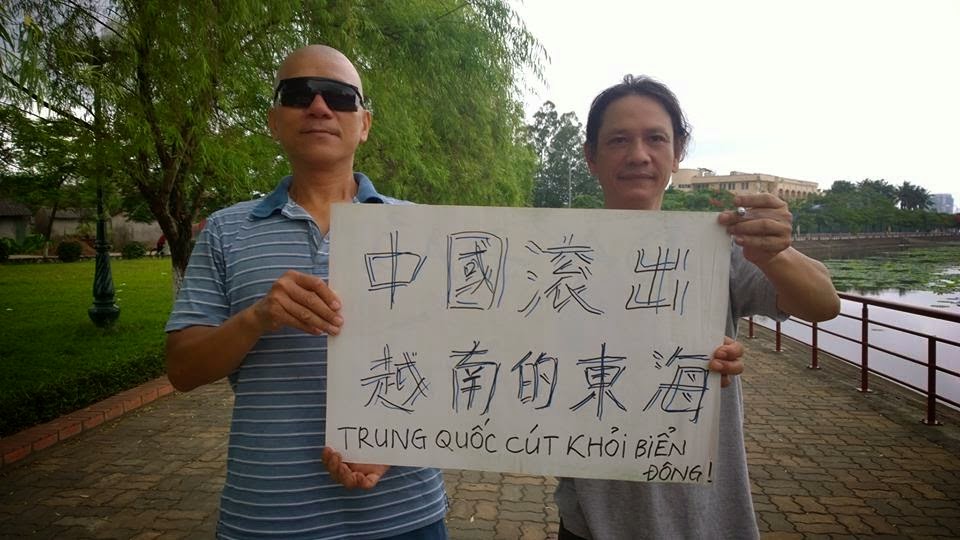 中國滾出
越南的東海
TRUNG QUỐC CÚT KHỎI BIỂN
ĐÔNG!